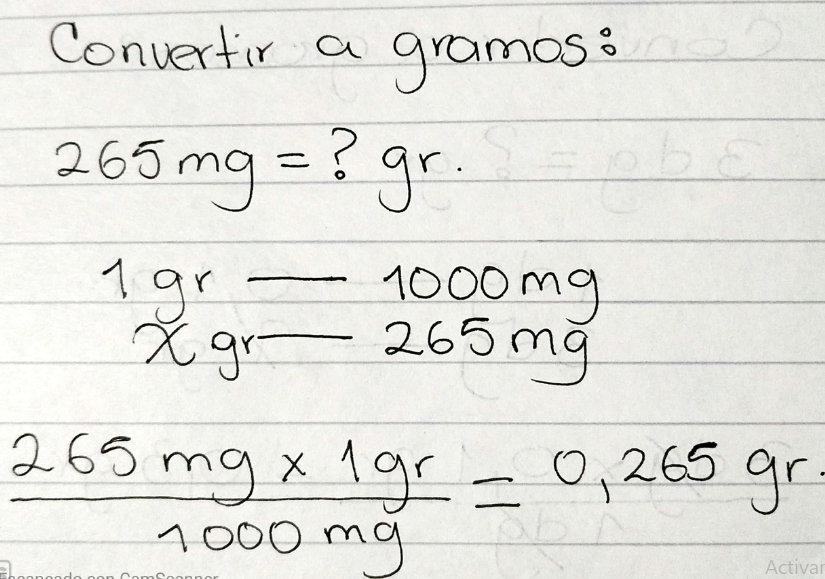 Convertir a gramos:
265 mg = ? gr.
1 gr — 1000 mg
x gr — 265 mg
265 mg x 1 gr = 0,265 gr.
1000 mg
Escaneado con CamScanner
Activar